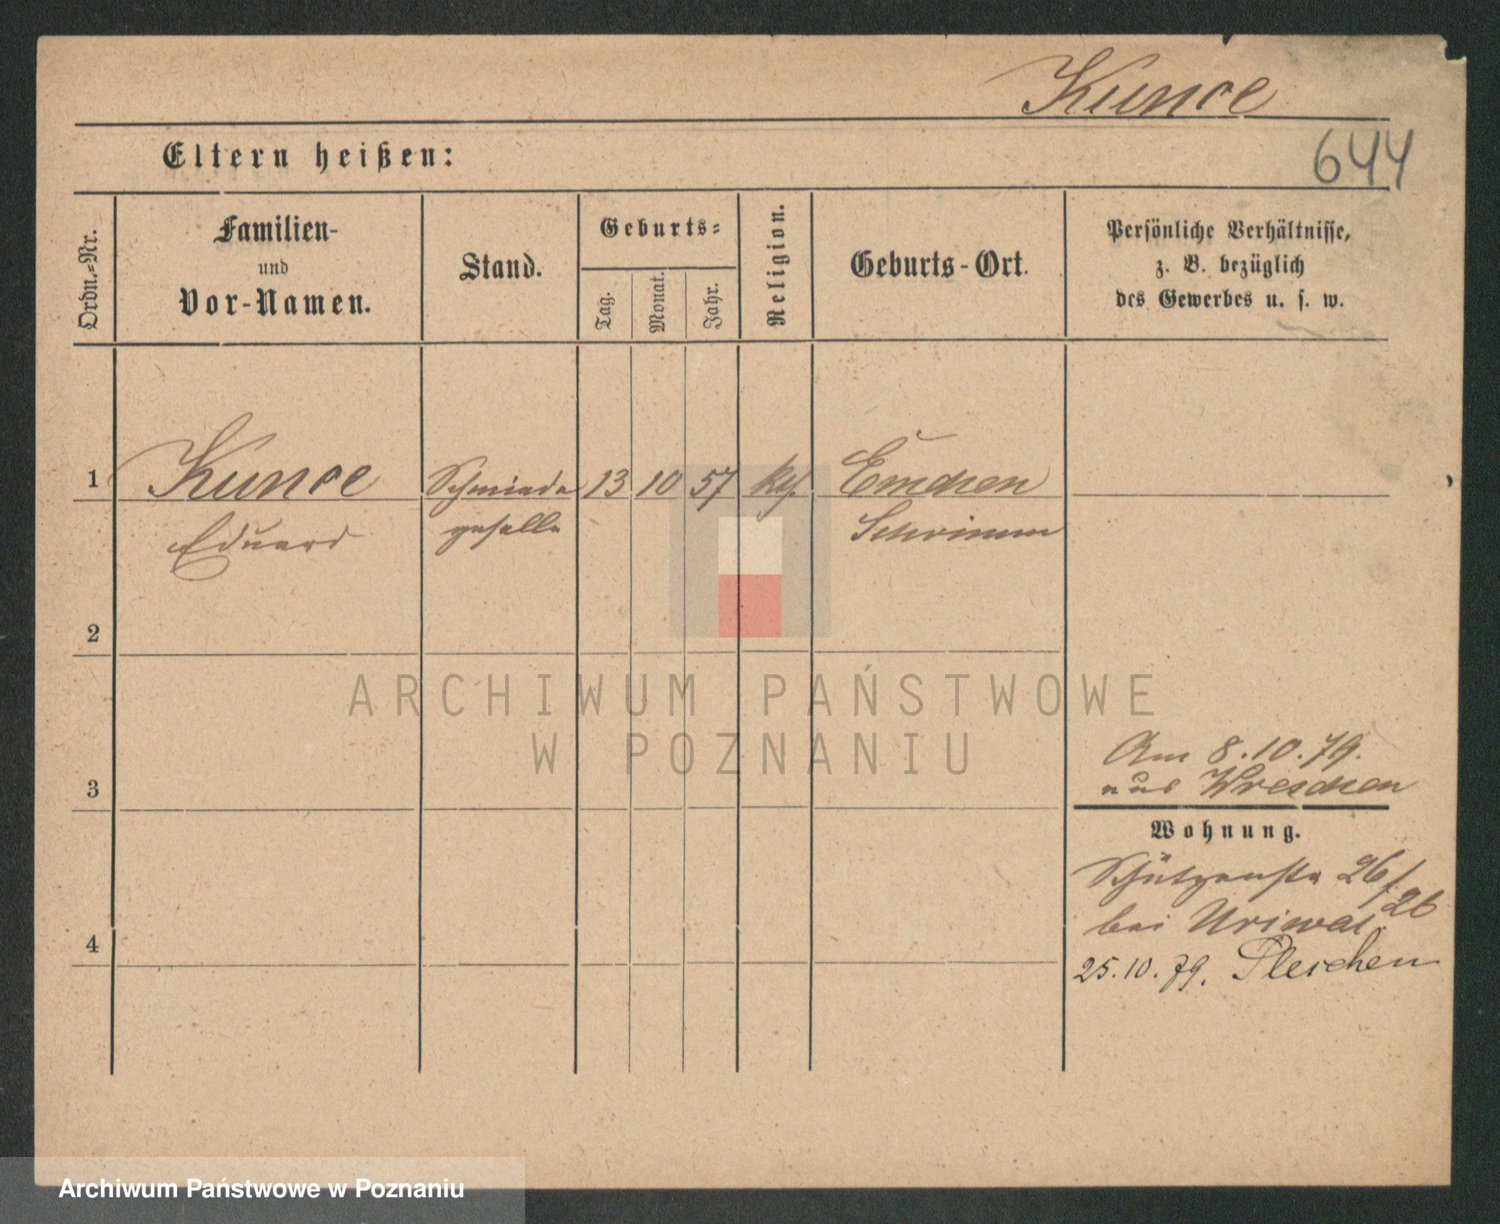 Kunce
644
Eltern heißen:
Ordn.-Nr.
Familien-
und
Vor-Namen.
Stand.
Geburts-
Tag.
Monat.
Jahr.
Religion.
Geburts-Ort.
Persönliche Verhältnisse,
z. B. bezüglich
des Gewerbes u. s. w.
1
Kunce
Eduard
Schmiede
geselle
13
10
57
Emchen
Schrimm
2
3
4
Am 8.10.79.
aus Wreschen
Wohnung.
Schützenstr 26/26
bei
25.10.79. Pleschen
ARCHIWUM PAŃSTWOWE
W POZNANIU
Archiwum Państwowe w Poznaniu